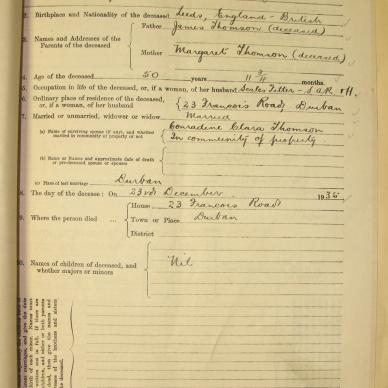 2. Birthplace and Nationality of the deceased Leeds, England - British
Father James Thomson (deceased)
3. Names and Addresses of the
Parents of the deceased
Mother Margaret Thomson (deceased)
4. Age of the deceased 50 years 11 3/4 months.
5. Occupation in life of the deceased, or, if a woman, of her husband Scales Fitter - S.A.R. & H.
6. Ordinary place of residence of the deceased,
or, if a woman, of her husband
23 Francois Road, Durban
7. Married or unmarried, widower or widow Married
(a) Name of surviving spouse (if any), and whether
married in community of property or not
Conradene Clara Thomson
In community of property
(b) Name or Names and approximate date of death
of pre-deceased spouse or spouses
(c) Place of last marriage Durban
8. The day of the decease: On 23rd December 1935
House 23 Francois Road
9. Where the person died Town or Place Durban
District
10. Names of children of deceased, and
whether majors or minors
Nil